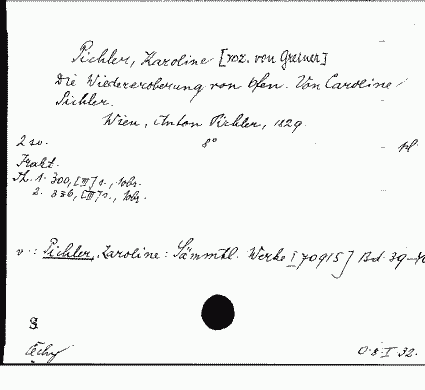 Pichler, Karoline [roz. von Greiner]
Die Wiedereroberung von Ofen. Von Caroline
Pichler.
Wien, Anton Pichler, 1829.
2 sv. 8°
Frakt.
Th. 1. 300, [III] s., 1obr.
2. 336, [III] s., 1obr.
v.: Pichler, Karoline: Sämmtl. Werke I 70915] Bd. 39-
S
O-8-I 32.